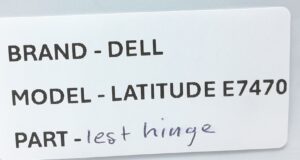 BRAND - DELL
MODEL - LATITUDE E7470
PART - lest hinge